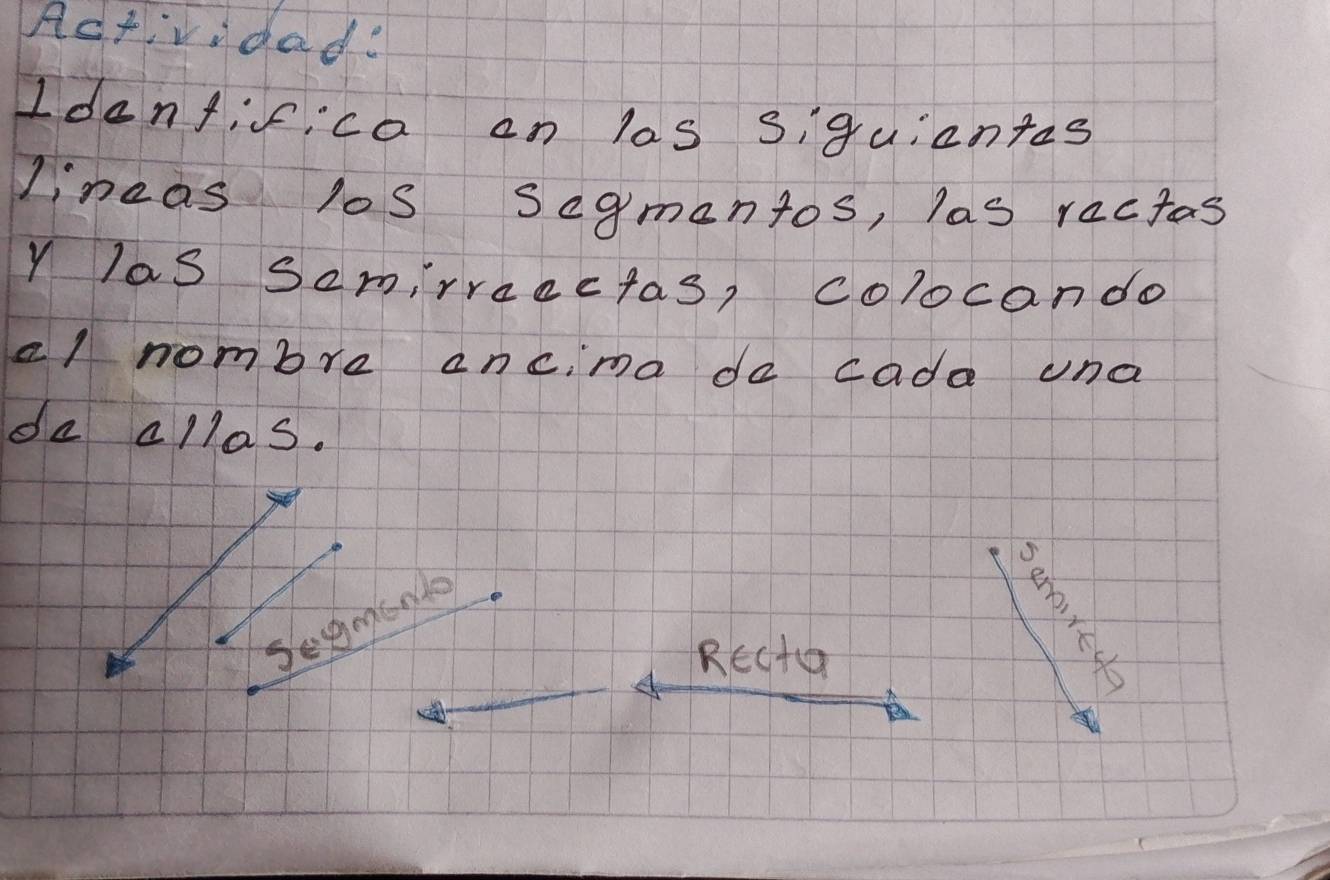 Actividad:
Identifica en las siguientes
líneas los segmentos, las rectas
y las semirreectas, colocando
el nombre encima de cada una
de ellas.
Segmento
Recta
Semirecta